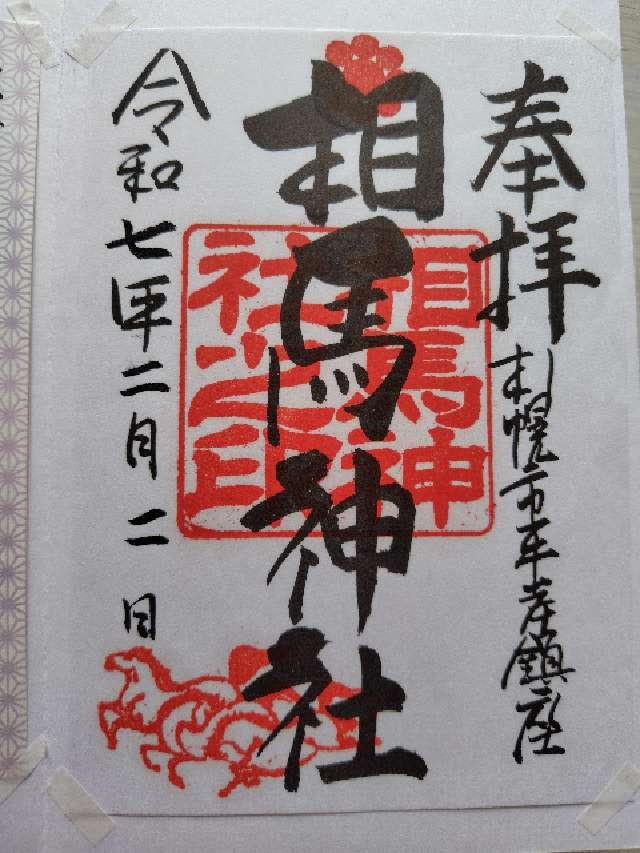 奉拝
札幌市平岸鎮座
相馬神社
相馬神
社之印
令和七年二月二日